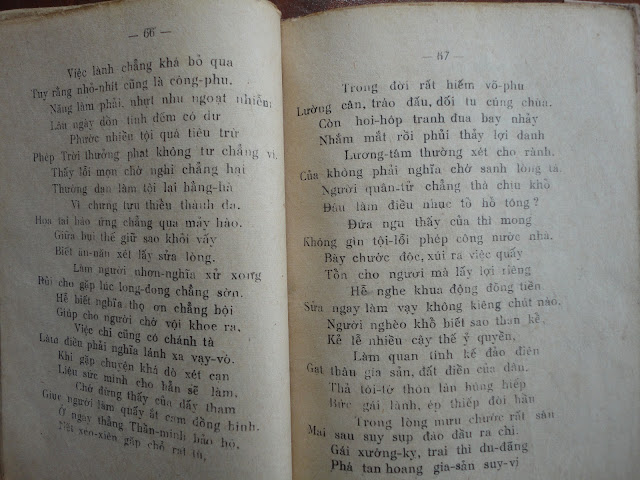 — 66 —
Việc lành chẳng khá bỏ qua
Tuy rằng nhỏ-nhít cũng là công-phu.
Năng làm phải, nhựt nhu ngoạt nhiễm
Lâu ngày dồn tính đếm có dư
Phước nhiền tội quá tiêu trừ
Phép Trời thưởng phạt không tư chẳng vì.
Thấy lỗi mọn chớ nghi chẳng hại
Thường dạo làm tội lại hằng-hà
Vì chưng tựu thiểu thành đa.
Họa tai báo ứng chẳng qua mảy hào.
Giữa bụi thế giữ sao khỏi vấy
Biết ăn-năn xét lấy sửa lòng.
Làm người nhơn-nghĩa xử xong
Rủi cho gặp lúc long-đong chẳng sờn.
Hễ biết nghĩa thọ ơn chẳng bội
Giúp cho người chớ vội khoe ra.
Việc chi cũng có chánh tà
Làm điều phải nghĩa lánh xa vạy-vò.
Khi gặp chuyện khá dò xét cạn
Liệu sức mình cho bẳn sẽ làm.
Chớ đừng thấy của dấy tham
Giục người làm quấy ắt cam đồng hình.
Ở ngay thẳng Thần-minh bảo hộ,
Nết xéo-xiên gặp chỗ rạt
— 67 —
Trong đời rất hiếm võ-phu
Lường cân, tráo đấu, đối tu cúng chùa.
Còn hoi-hóp tranh đua bay nhảy
Nhắm mắt rồi phủi thảy lợi danh
Lương-tâm thường xét cho rành.
Của không phải nghĩa chớ sanh lòng tà.
Người quân-tử chẳng thà chịu khổ
Đâu làm điều nhục tổ hổ tông?
Đứa ngu thấy của thì mong
Không gìn tội-lỗi phép công nước nhà.
Bày chước độc, xúi ra việc quấy
Tổn cho người mà lấy lợi riêng
Hễ nghe khua động đồng tiền
Sửa ngay làm vạy không kiêng chút nào.
Người nghèo khổ biết sao than kể,
Kẻ lễ nhiều cậy thế ỷ quyền,
Làm quan tính kế đảo điên
Gạt thâu gia sản, đất điền của dân.
Thả tôi-tớ thôn lân húng hiếp
Bức gái, lành, ép thiếp đòi hầu
Trong lòng mưu chước rất sâu
Mai sau suy sụp đáo đầu ra chi.
Gái xướng-kỵ, trai thì du-đãng
Phá tan hoang gia-sản suy-vi